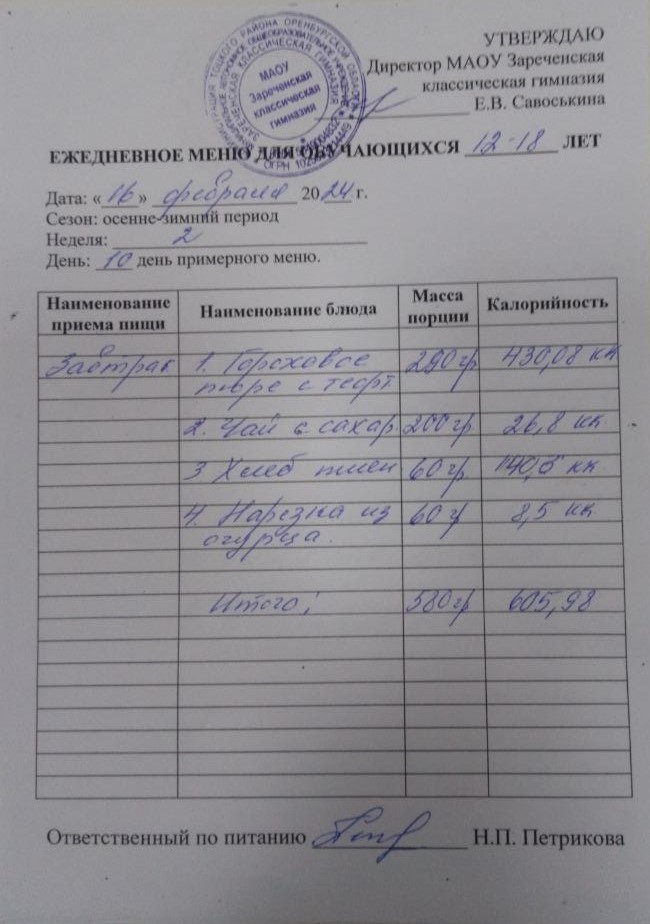 УТВЕРЖДАЮ
Директор МАОУ Зареченская
классическая гимназия
Е.В. Савоськина
МАОУ
Зареченская
классическая
гимназия
ЕЖЕДНЕВНОЕ МЕНЮ ДЛЯ ОБУЧАЮЩИХСЯ 12-18 ЛЕТ
Дата: «16» февраля 2024 г.
Сезон: осенне-зимний период
Неделя: 2
День: 10 день примерного меню.
Наименование приема пищи Наименование блюда Масса порции Калорийность
Завтрак 1. Гороховое 290гр 430,08 кк
пюре с тефт
2. Чай с сахар. 200гр 26,8 кк
3 Хлеб пшен 60гр 140,6 кк.
4. Нарезка из 60г 8,5 кк
огурца.
Итого: 580гр 605,98
Ответственный по питанию Н.П. Петрикова